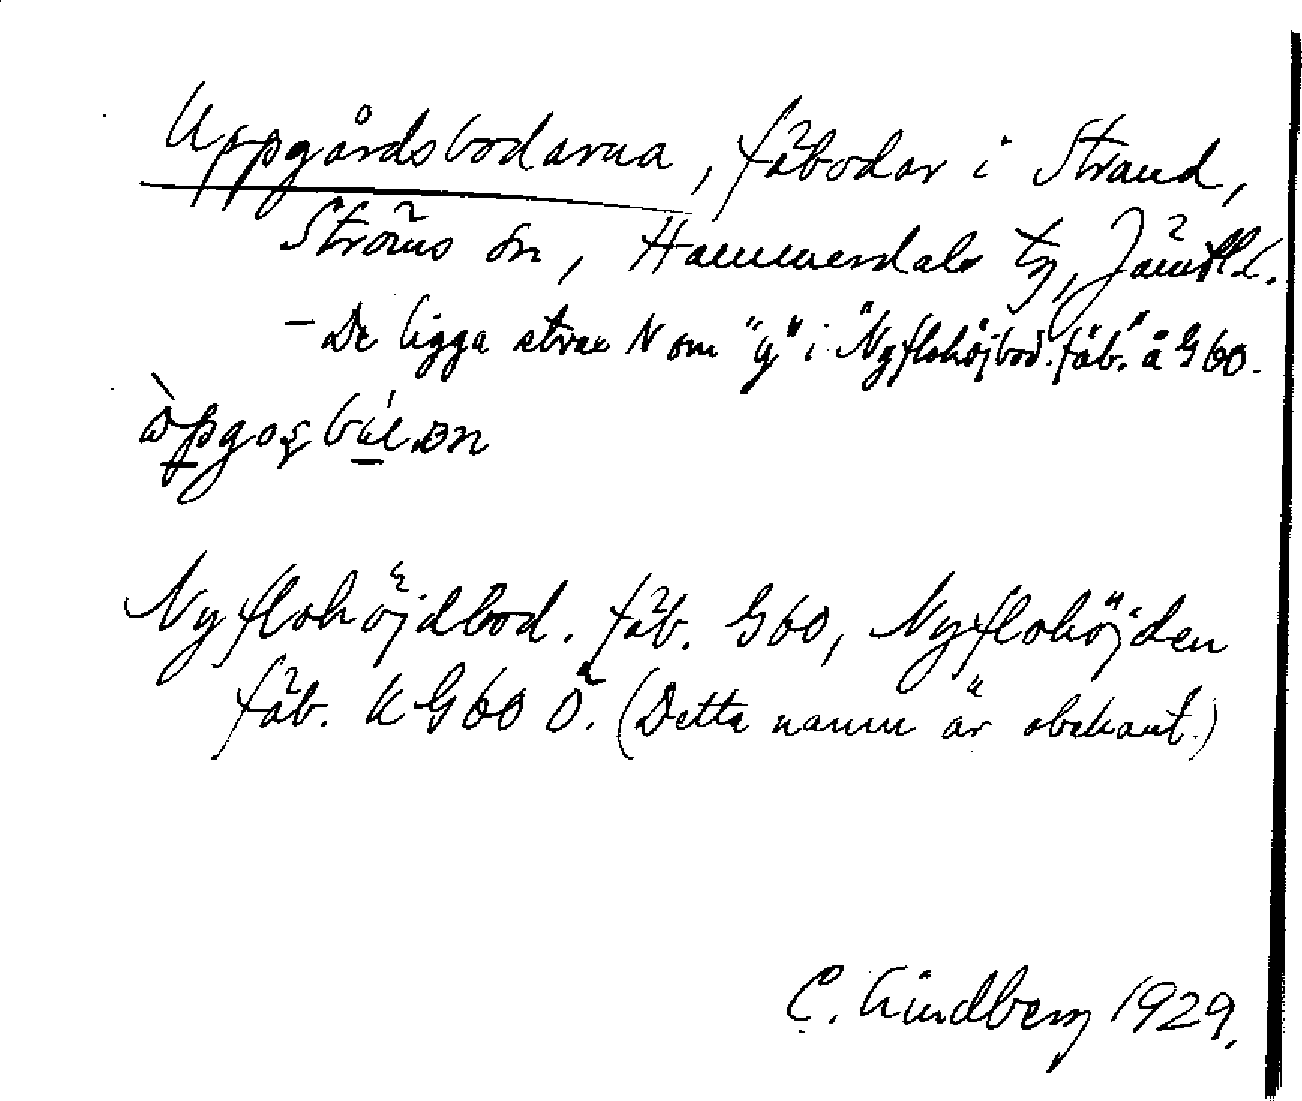 Uppgårdsbodarna, fäbodar i Strand,
Ströms sn, Hammerdals tg, Jämtl.l.
- De ligga strax N om "y" i "Nyflohöjbod. fäb." å G 60.
Nyflohöjdbod. fäb. G60, Nyflohöjden
fäb. K G 60 Ö. (Detta namn är obekant.)
C. Lindberg 1929.